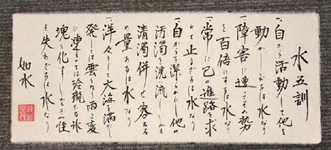 水五訓
一、自から活動して他を
動かしむるは水なり
一、障害に逢ひてその勢
を百倍にするは水なり
一、常に己の進路を求
めて止まざるは水なり
一、自から潔うして他の
汚濁を洗ひ
清濁併せ容るゝ
の量あるは水なり
一、洋々として大海を満し
発しては雲となり雨と変
じ
凍っては玲瓏たる氷
塊と化すしかもその性
を失はざるは水なり
如水